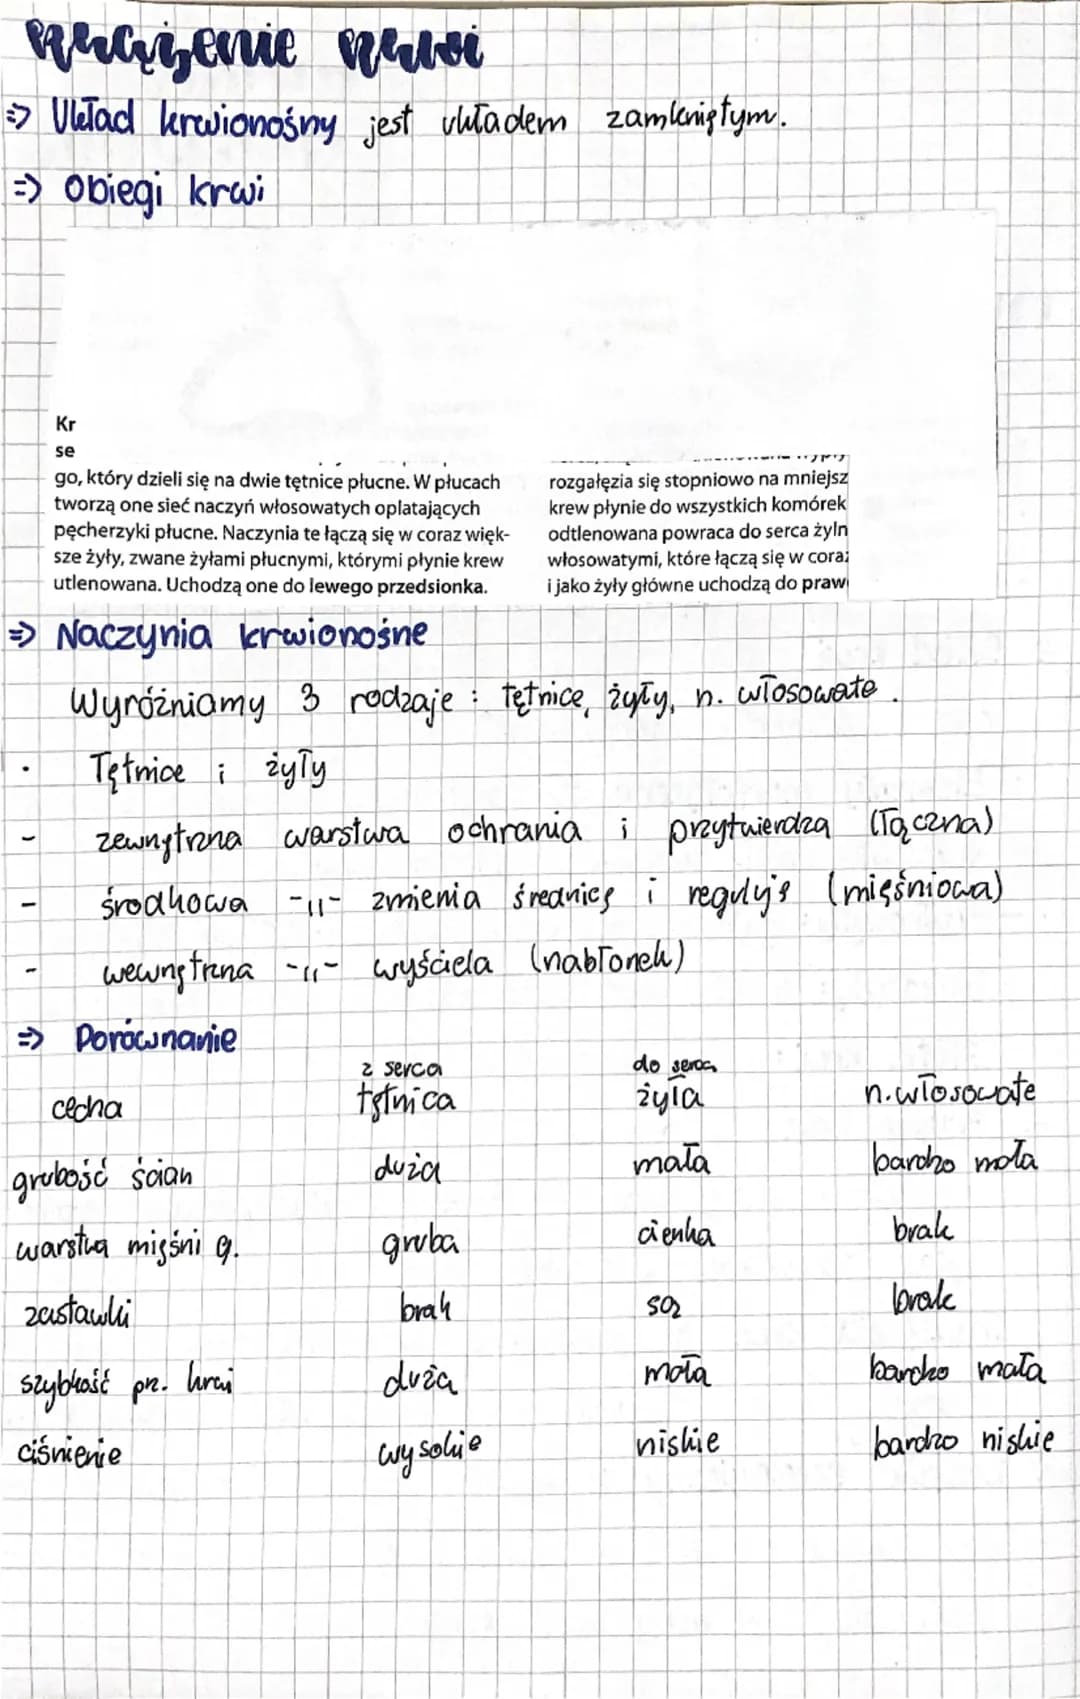 krążenie krwi
=> Układ krwionośny jest układem zamkniętym.
=> Obiegi krwi
Kr
se
go, który dzieli się na dwie tętnice płucne. W płucach
tworzą one sieć naczyń włosowatych oplatających
pęcherzyki płucne. Naczynia te łączą się w coraz więk-
sze żyły, zwane żyłami płucnymi, którymi płynie krew
utlenowana. Uchodzą one do lewego przedsionka.
rozgałęzia się stopniowo na mniejsz
krew płynie do wszystkich komórek
odtlenowana powraca do serca żyln
włosowatymi, które łączą się w cora
i jako żyły główne uchodzą do praw
=> Naczynia krwionośne
Wyróżniamy 3 rodzaje : tętnice, żyły, n. włosowate.
· Tętnice i żyły
- zewnętrzna warstwa ochrania i przytwierdza (łączna)
- środkowa -11- zmienia średnicę i reguluje (mięśniowa)
- wewnętrzna -11- wyściela (nabłonek)
=> Porównanie
z serca do serca
cecha tętnica żyła n.włosowate
grubość ścian duża mała bardzo mała
warstwa mięśni g. gruba cienka brak
zastawki brak są brak
szybkość prz. krwi duża mała bardzo mała
ciśnienie wysokie niskie bardzo niskie